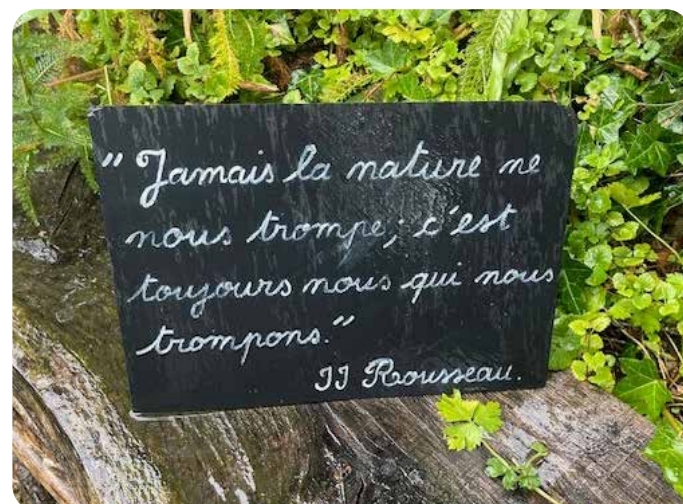 " Jamais la nature ne
nous trompe; c'est
toujours nous qui nous
trompons."
JJ Rousseau.